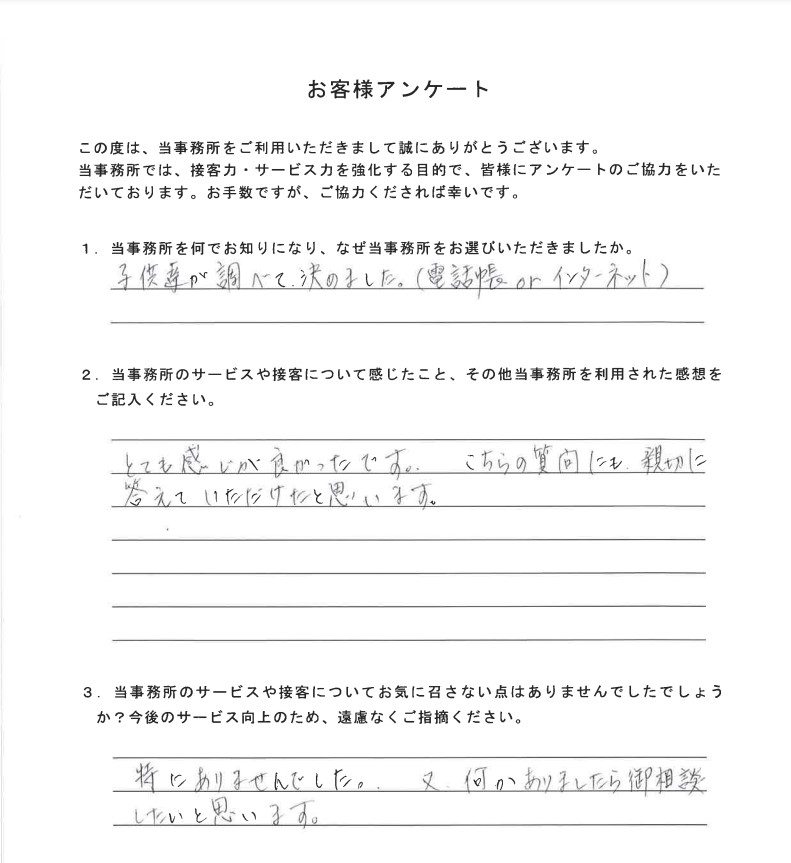 お客様アンケート
この度は、当事務所をご利用いただきまして誠にありがとうございます。
当事務所では、接客力・サービス力を強化する目的で、皆様にアンケートのご協力をいた
だいております。お手数ですが、ご協力くだされば幸いです。
1. 当事務所を何でお知りになり、なぜ当事務所をお選びいただきましたか。
子供達が調べて、決めました。(電話帳 or インターネット)
2. 当事務所のサービスや接客について感じたこと、その他当事務所を利用された感想を
ご記入ください。
とても感じが良かったです。 こちらの質問にも、親切に
答えていただけたと思います。
3. 当事務所のサービスや接客についてお気に召さない点はありませんでしたでしょう
か?今後のサービス向上のため、遠慮なくご指摘ください。
特にありませんでした。 又、何かありましたら御相談
したいと思います。